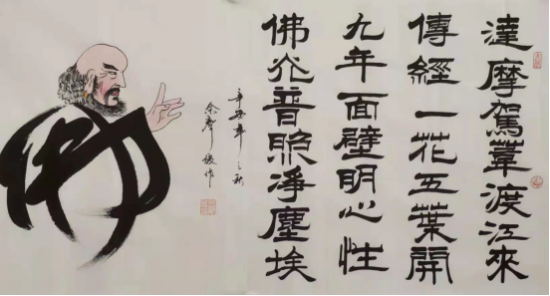 達摩駕葦渡江來
傳經一花五葉開
九年面壁明心性
佛光普照淨塵埃
佛